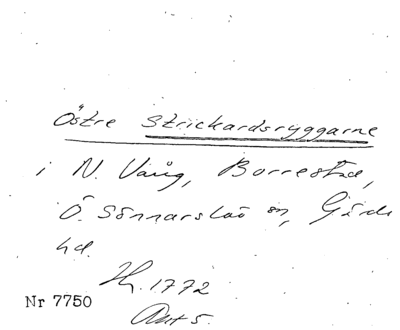 Östre Strickardsryggarne
i N. Vång, Borrestad,
Ö. Sönnarslöv sn, Gärds
hd.
H. 1772
Nr 7750
Akt 5.